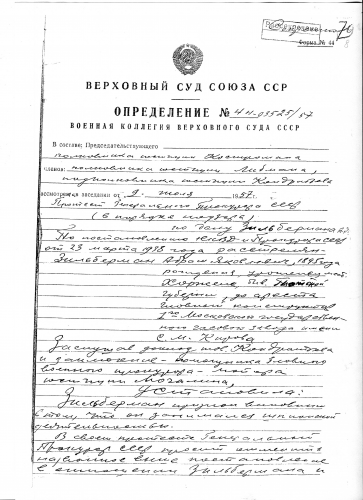 Рассекречено
76
Форма № 44
ВЕРХОВНЫЙ СУД СОЮЗА ССР
ОПРЕДЕЛЕНИЕ № 4н-03525/57
ВОЕННАЯ КОЛЛЕГИЯ ВЕРХОВНОГО СУДА СССР
В составе: Председательствующего
полковника юстиции
членов: полковника юстиции Лебмана,
подполковника юстиции Кондратова
рассмотрела в заседании от 2 июля 1957 г.
Протест Генерального Прокурора СССР
(в порядке надзора)
по делу Зильбермана А.Я.
По постановлению НКВД и Прокурора СССР
от 23 марта 1938 года расстрелян
Зильберман Абрам Яковлевич, 1895 года
рождения, уроженец
губернии, до ареста
главный конструктор
1го Московского государствен-
ного часового завода имени
С. М. Кирова
Заслушав доклад тов. Кондратова
и заключение помощника Главного
военного прокурора майора
юстиции
Установила:
Зильберман признан виновным
в том, что он занимался шпионской
деятельностью.
В своем протесте Генеральный
Прокурор СССР просит отменить
постановление
в отношении Зильбермана и